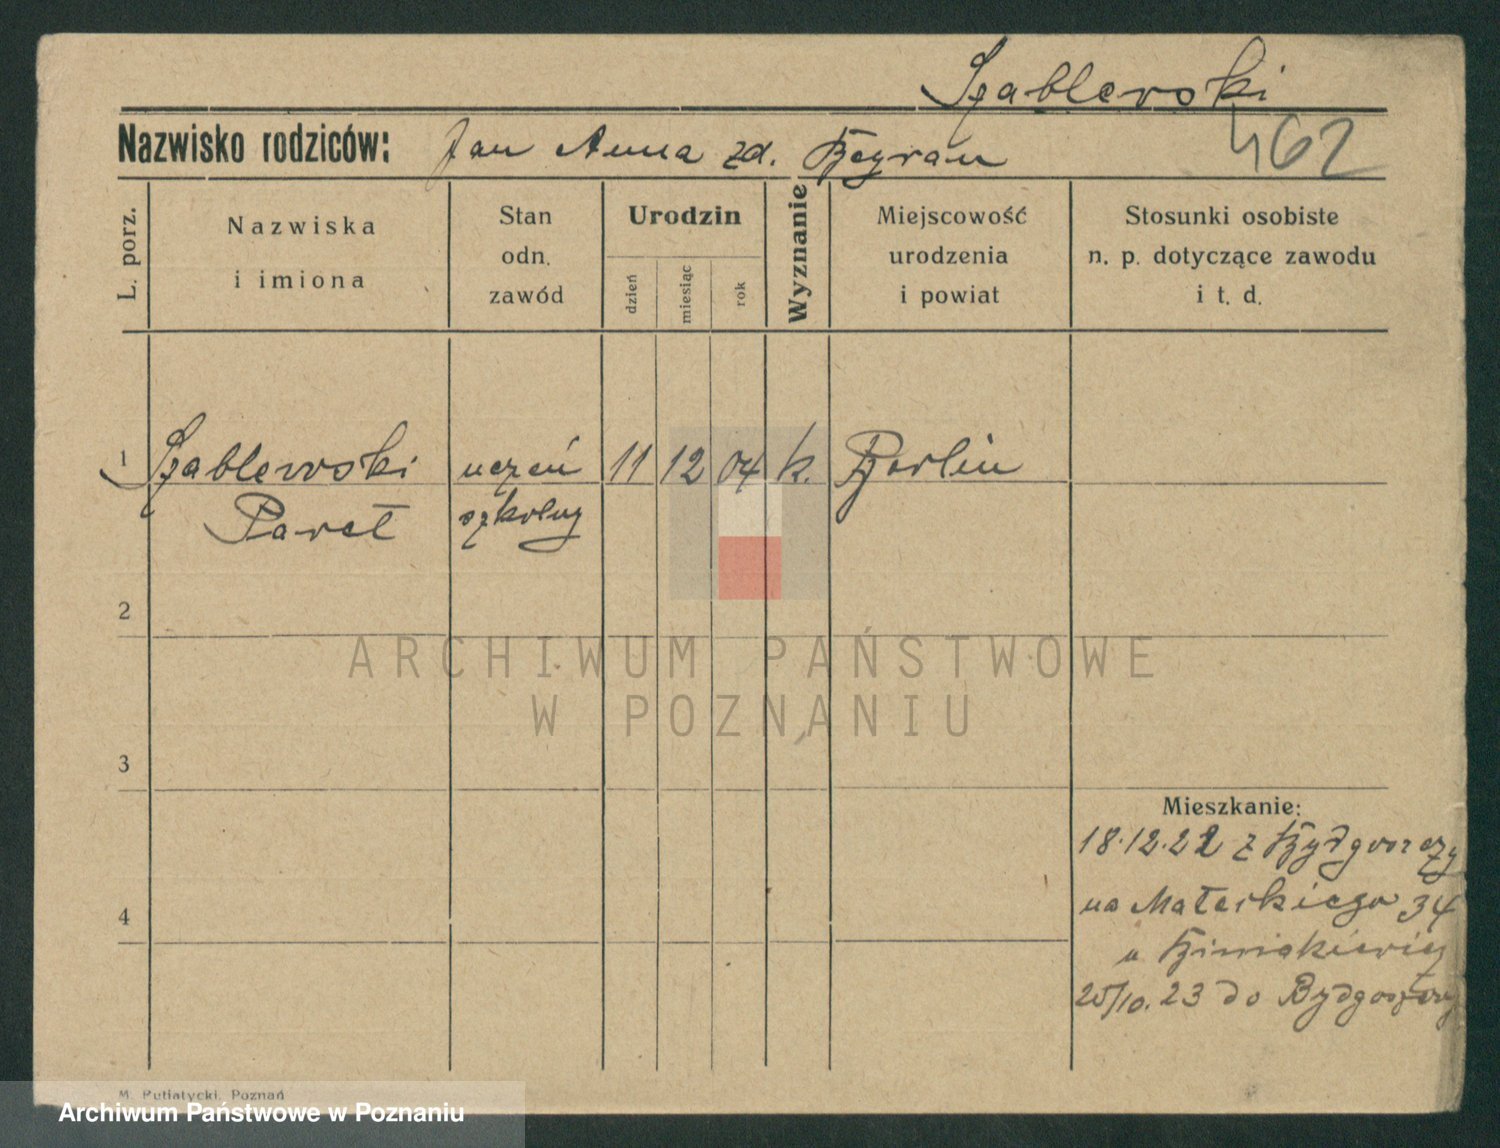 Szablewski
462
Nazwisko rodziców: Jan Anna zd.
L. porz.
Nazwiska
i imiona
Stan
odn.
zawód
Urodzin
dzień
miesiąc
rok
Wyznanie
Miejscowość
urodzenia
i powiat
Stosunki osobiste
n. p. dotyczące zawodu
i t. d.
1 Szablewski uczeń 11 12 04 k. Berlin
Paweł szkolny
2
ARCHIWUM PAŃSTWOWE
W POZNANIU
3
Mieszkanie:
18.12.22 z Bydgoszczy
na Małeckiego 34
u
25/10.23 do Bydgoszczy
4
M. Putiatycki, Poznań
Archiwum Państwowe w Poznaniu